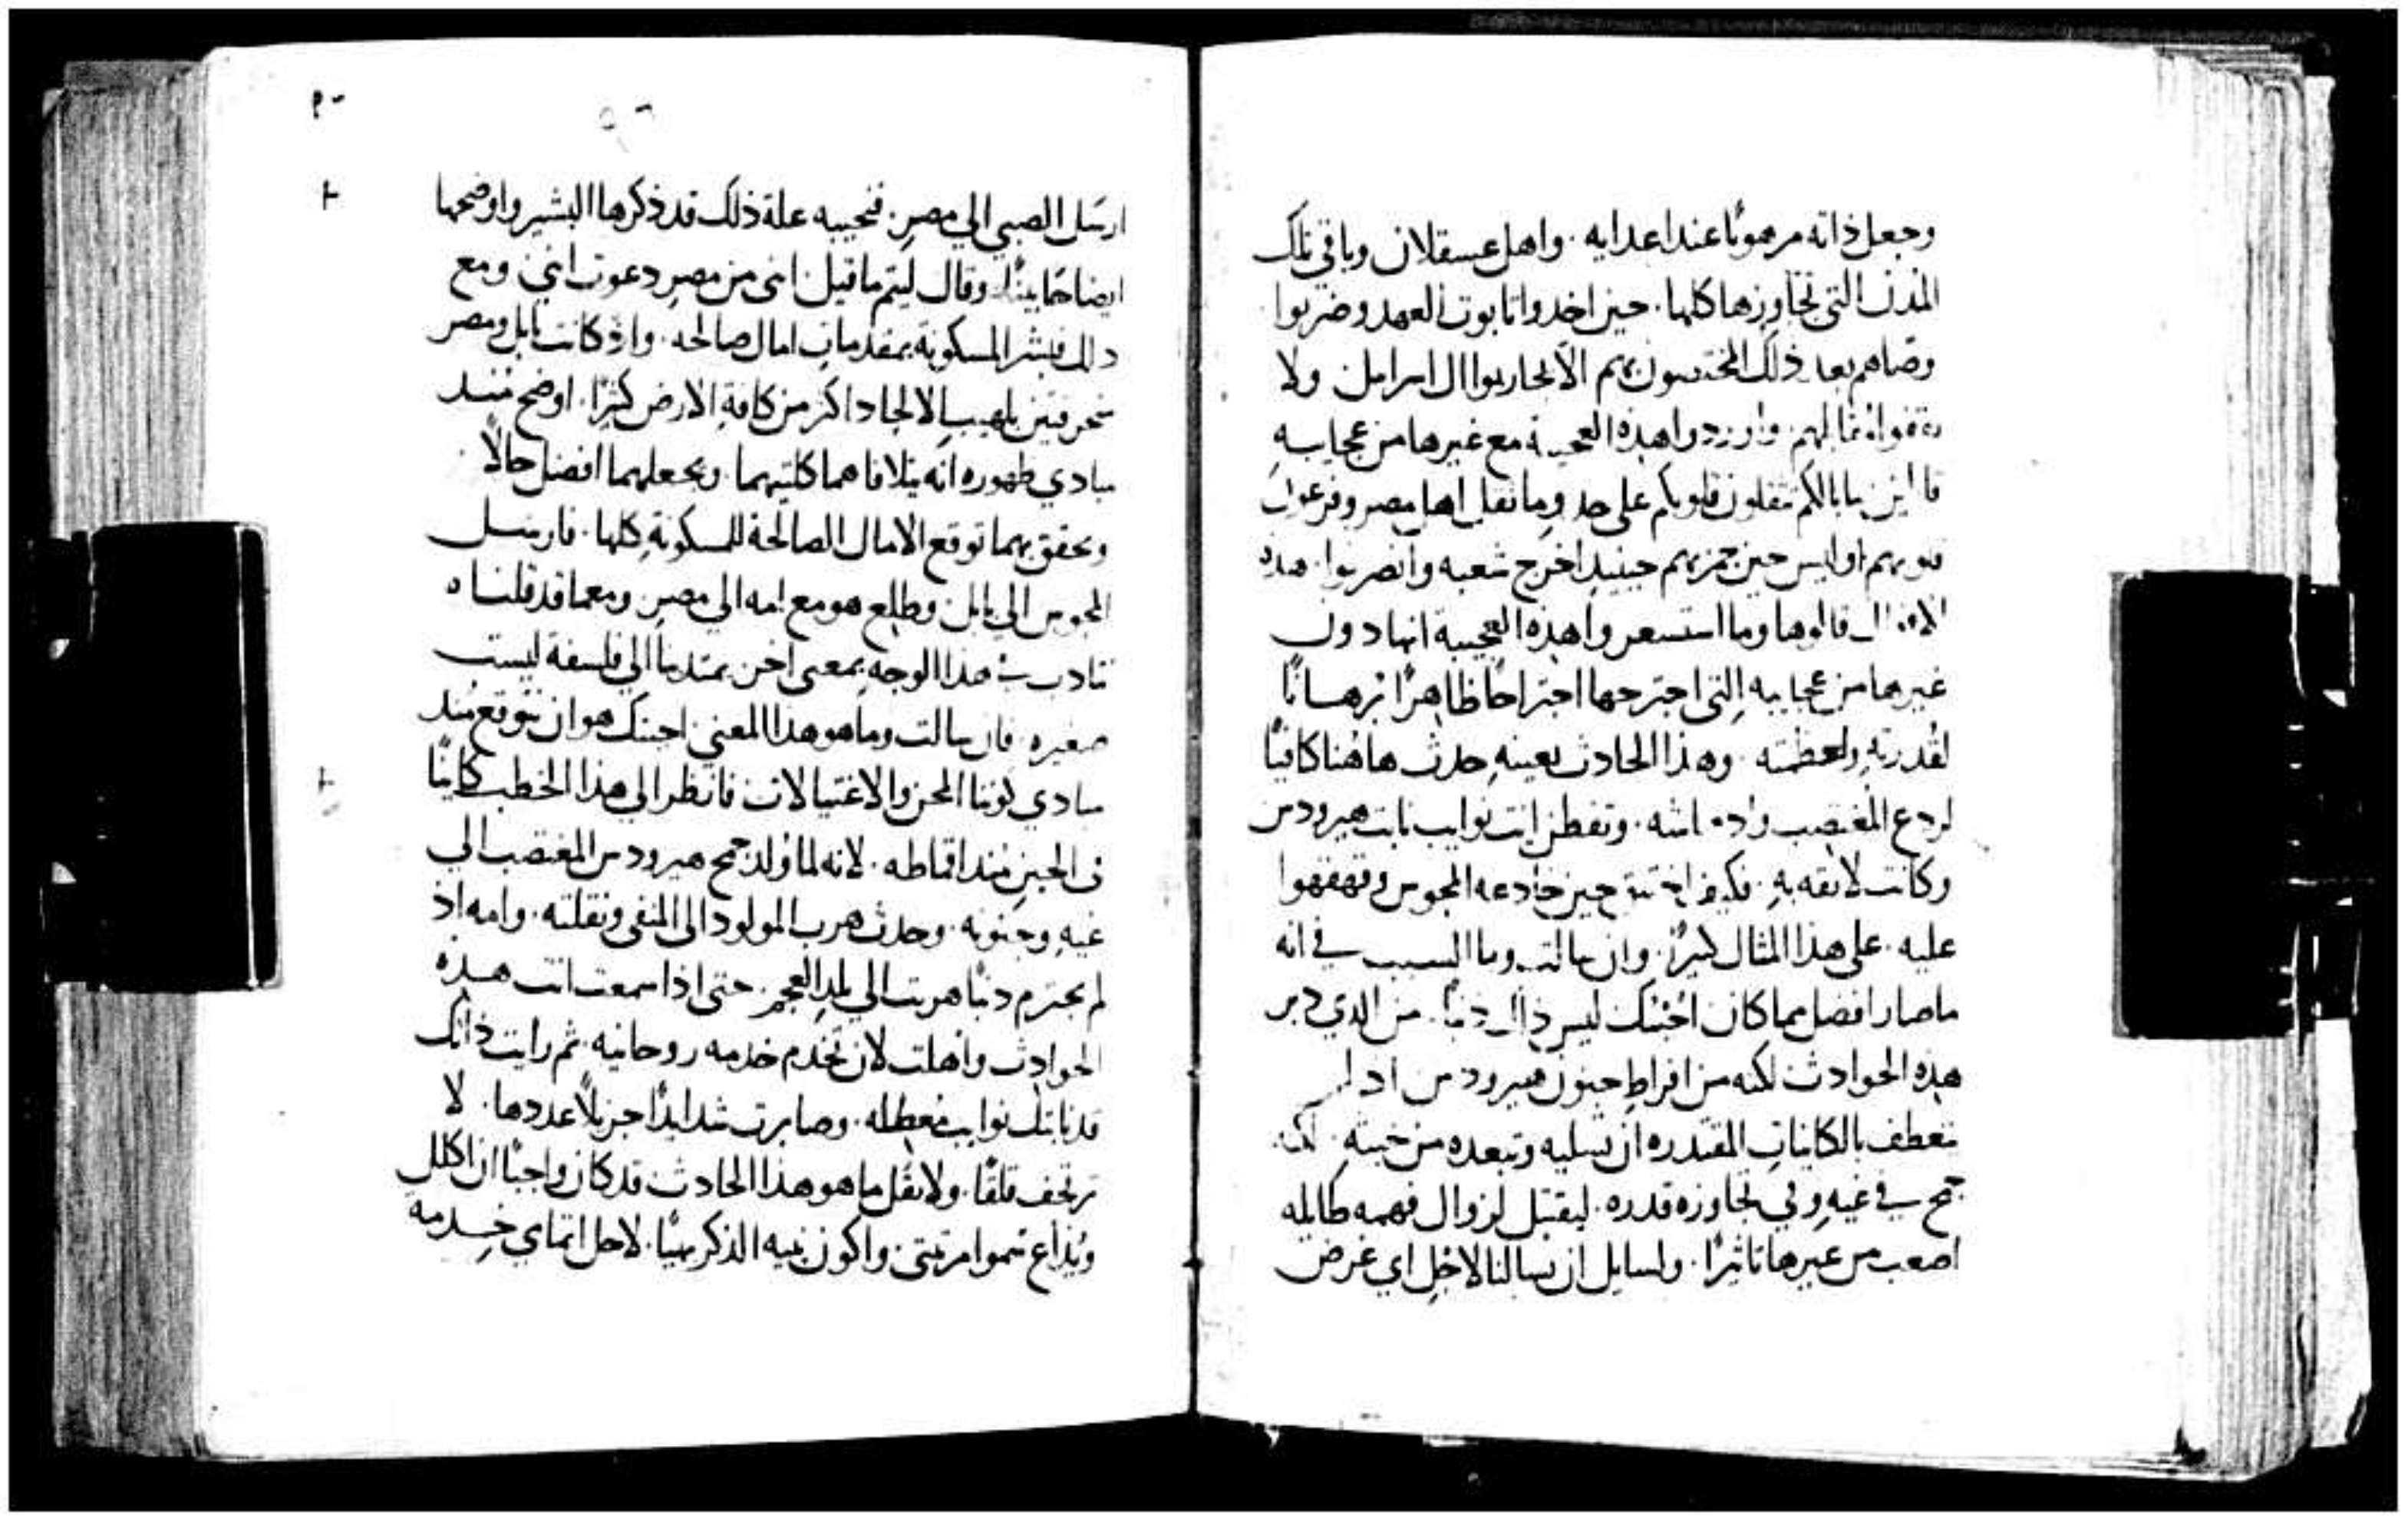 وجعل ذاته مرهونًا عند اعدايه . واهل عسقلان وباقي تلك
المدن التي تجاوزها كلها . حين اخدوا تابوت العهد وضربوا
وصاهم بعد ذلك المختصون بهم الا يحاربوا ال اسرايل ولا
يقفوا قبالهم . واوردوا هذه العجيبة مع غيرها من عجايبه
تثقلون قلوبكم على حد وما ثقل اهل مصر وفرعون
قلوبهم او ليس حين حينيدٍ اخرج شعبه وانصرفوا . هذه
قالوها وما استشعروا هذه العجيبة انها دون
غيرها من عجايبه التي اجترحها اجتراحًا ظاهرًا برهانًا
لقدرته ولعظمته . وهذا الحادث بعينهِ حدث هاهنا كافيًا
لردع المغتصب . وتفطن انت نوايب نابت هيرودس
وكانت لايقه بهِ . فكيف اختنق حين خادعه المجوس وقهقهوا
عليه . على هذا المثال كثيرٌ . وان سالت وما السبب في انه
ما صار افضل مما كان اجبتك ليس ذاك دنبًا . من الدي دبر
هذه الحوادث لكنه من افراطِ جنون هيرودس اد لم
تعطف بالكاينات المقتدره ان تسليه وتبعده من خبثهِ . لكنه
جمح في غيهِ وفي تجاوزه قدره . ليقتبل لزوال فهمه طايله
اصعب من غيرها تاثيرًا . ولسايل ان يسالنا لاجل اي غرض
ارسل الصبي الي مصر . فنجيبه علة ذلك قد ذكرها البشير واوضحها
ايضاحًا بينًا . وقال ليتم ما قيل انني من مصر دعوت ابني ومع
دلك فبشر المسكونة بمقدمات امال صالحه . واذ كانت بابل ومصر
محرقتين بلهيب الالحاد اكثر من كافةِ الارض كثيرًا . اوضح مند
مبادي ظهوره انه يتلافاهما كلتيهما . ويجعلهما افضل حالًا
ويحقق بهما توقع الامال الصالحة للمسكونةِ كلها . فارسل
المجوس الي بابل وطلع هو مع امه الي مصر . ومع ما قد قلناه
نتادب في هذا الوجهِ بمعنى اخر يمتد بنا الي فلسفة ليست
صغيره . فان سالت وما هو هذا المعني اجبتك هو ان نتوقع مند
مبادي كوننا المحن والاغتيالات فانظر الي هذا الخطب كاينًا
في الحين مند اقماطه . لانه لما وُلد جمح هيرودس المغتصب الي
غيهِ وجنونه . وحدث هرب المولود الى المنفي ونقلته . وامه اذ
لم تجترم دنبًا هربت الي بلدِ العجم . حتى اذا سمعت انت هذه
الحوادث واهلت لان تخدم خدمه روحانيه ثم رايت ذاتك
قد نابتك نوايب معطله . وصابرت شدايدًا جزيلًا عددها . لا
ترتجف قلقًا . ولا تقل ما هو هذا الحادث قد كان واجبًا ان اكلل
ويُذاع سموا مرتبتي واكون نبيه الذكر بهيًا . لاجل اتمامي خدمه